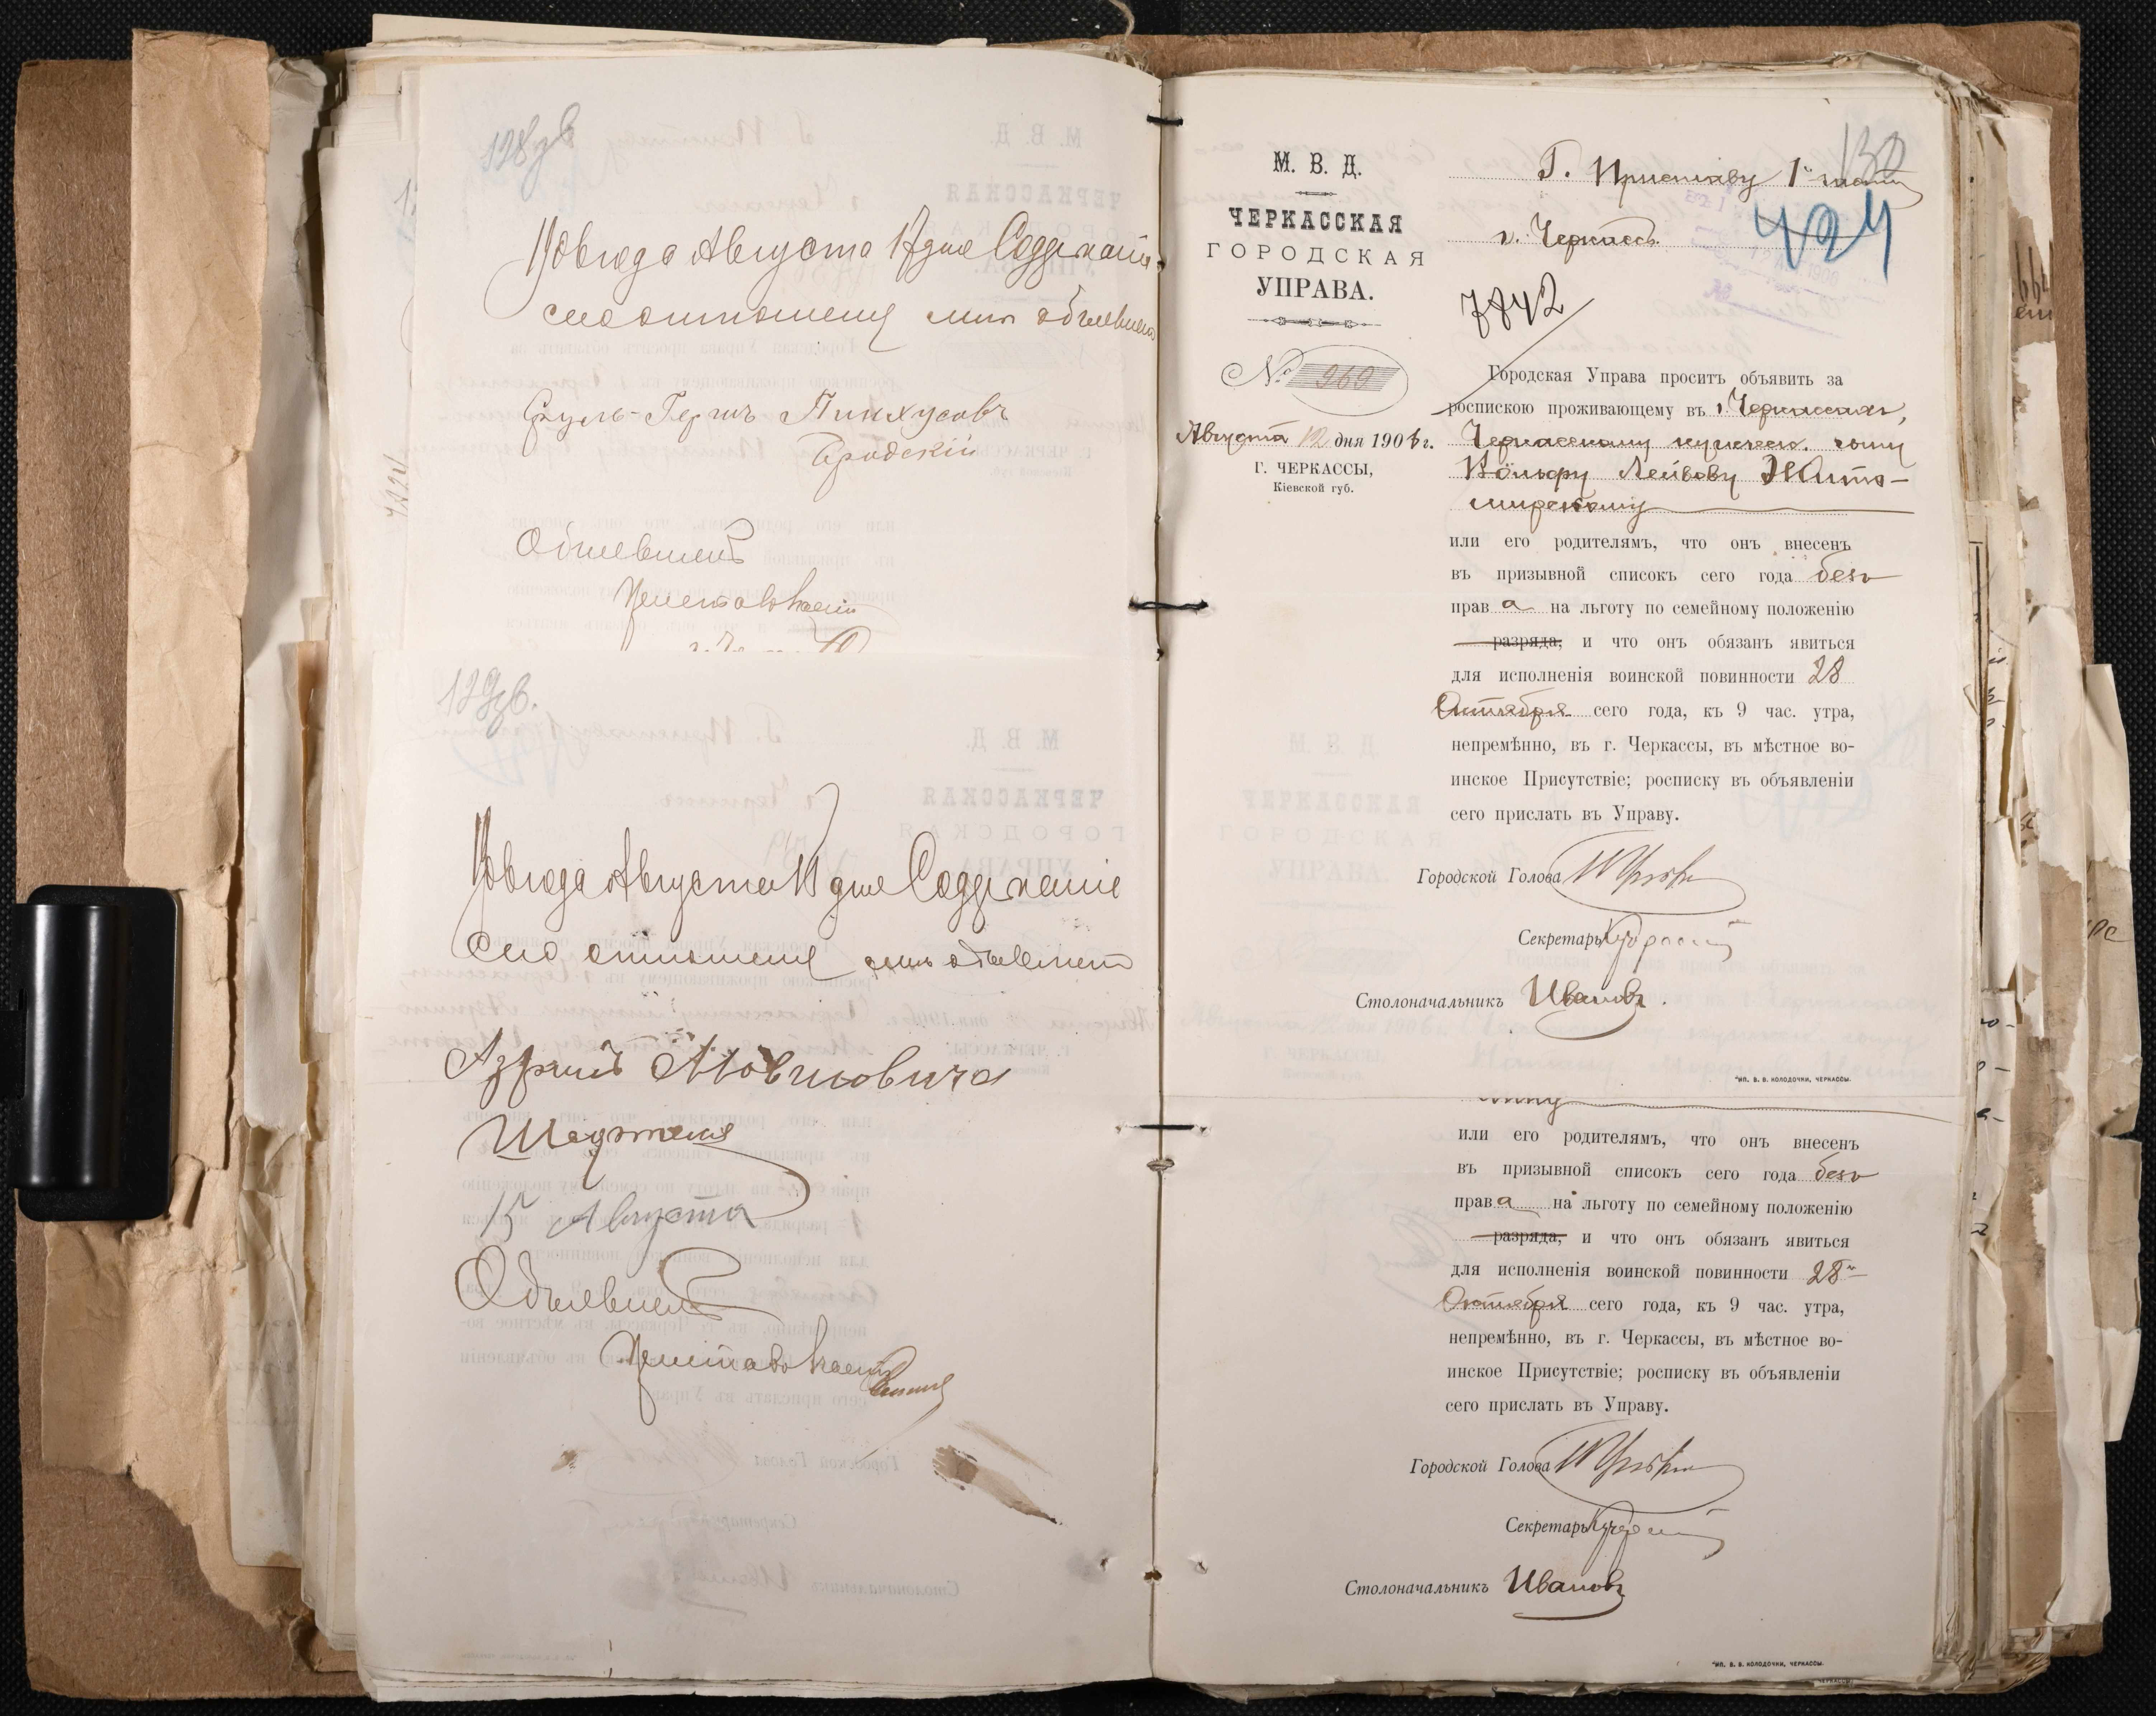 128 об
1906 года Августа 17 дня Содержаніе
сего отношенія мнѣ объявлено
Сруль-Гершъ Пинхусовъ
Бродскій
Объявилъ
Приставъ
129 об.
1906 года Августа 15 дня Содержаніе
сего отношенія мнѣ объявлено
Азріилъ Мовшовича
15 Августа
Объявилъ
Приставъ
М. В. Д.
ЧЕРКАССКАЯ
ГОРОДСКАЯ
УПРАВА.
№ 969
Августа 12 дня 1906 г.
Г. ЧЕРКАССЫ,
Кіевской губ.
130
Г. Приставу 1й части
г. Черкассъ
424
7842
Городская Управа проситъ объявить за
роспискою проживающему въ г. Черкассахъ,
Черкасскому купеческ. сыну
Лейбову Жито-
мирскому
или его родителямъ, что онъ внесенъ
въ призывной списокъ сего года безъ
права на льготу по семейному положенію
разряда, и что онъ обязанъ явиться
для исполненія воинской повинности 28
Октября сего года, къ 9 час. утра,
непремѣнно, въ г. Черкассы, въ мѣстное во-
инское Присутствіе; росписку въ объявленіи
сего прислать въ Управу.
Городской Голова
Секретарь
Столоначальникъ Ивановъ.
ТИП. В. В. КОЛОДОЧКИ, ЧЕРКАССЫ.
или его родителямъ, что онъ внесенъ
въ призывной списокъ сего года безъ
права на льготу по семейному положенію
разряда, и что онъ обязанъ явиться
для исполненія воинской повинности 28го
Октября сего года, къ 9 час. утра,
непремѣнно, въ г. Черкассы, въ мѣстное во-
инское Присутствіе; росписку въ объявленіи
сего прислать въ Управу.
Городской Голова
Секретарь
Столоначальникъ Ивановъ
ТИП. В. В. КОЛОДОЧКИ, ЧЕРКАССЫ.